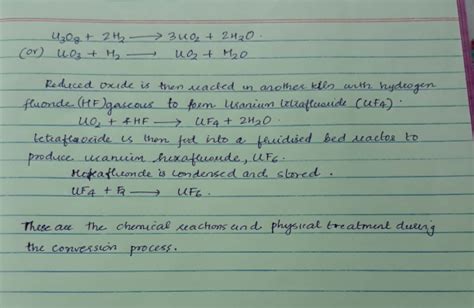 U3O8 + 2H2 ⟶ 3UO2 + 2H2O.
(or) UO3 + H2 ⟶ UO2 + H2O
Reduced oxide is then reacted in another kiln with hydrogen
fluoride (HF) gaseous to form Uranium tetrafluoride (UF4).
UO2 + 4HF ⟶ UF4 + 2H2O.
tetrafluoride is then fed into a fluidised bed reactor to
produce uranium hexafluoride, UF6.
Hexafluoride is condensed and stored.
UF4 + F2 ⟶ UF6.
These are the chemical reactions and physical treatment during
the conversion process.